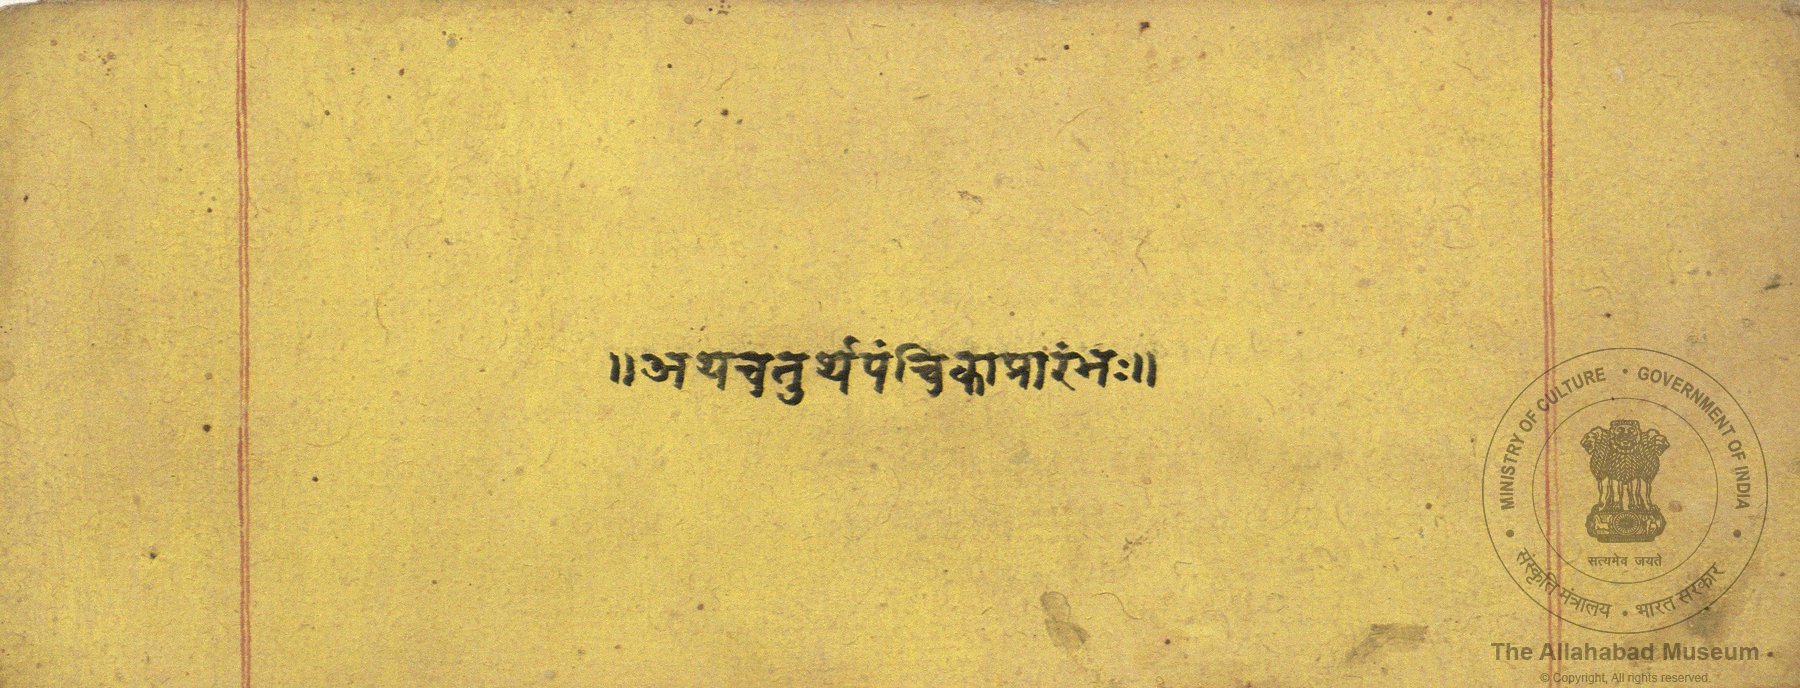 ॥अथचतुर्थपंचिकाप्रारंभः॥
MINISTRY OF CULTURE • GOVERNMENT OF INDIA
सत्यमेव जयते
संस्कृति मंत्रालय • भारत सरकार
The Allahabad Museum
© Copyright, All rights reserved.